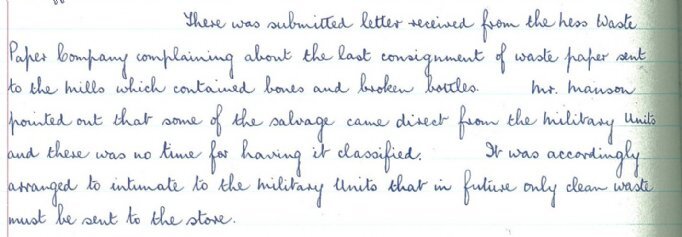 There was submitted letter received from the Ness Waste
Paper Company complaining about the last consignment of waste paper sent
to the Mills which contained bones and broken bottles. Mr. Manson
pointed out that some of the salvage came direct from the Military Units
and there was no time for having it classified. It was accordingly
arranged to intimate to the Military Units that in future only clean waste
must be sent to the store.